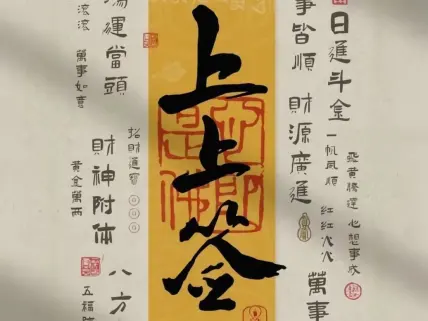 日進斗金
飛黃騰達 心想事成
一帆風順 紅紅火火
萬事
事皆順 財源廣進
上上签
心即是佛
運當頭
招財進寶
財神附体
八方
滾滾 萬事如意
黃金萬兩
五福